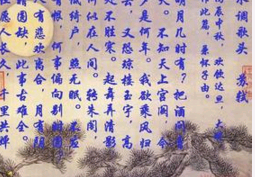 水调歌头 苏轼
辰中秋，欢饮达旦，大醉
此篇，兼怀子由。
明月几时有？把酒问青
天。不知天上宫阙，今
夕是何年。我欲乘风归
去，又恐琼楼玉宇，高
处不胜寒。起舞弄清影，
何似在人间。转朱阁，
低绮户，照无眠。不应
有恨，何事偏向别时圆
有悲欢离合，月有阴
晴圆缺，此事古难全。
愿人长久，千里共婵